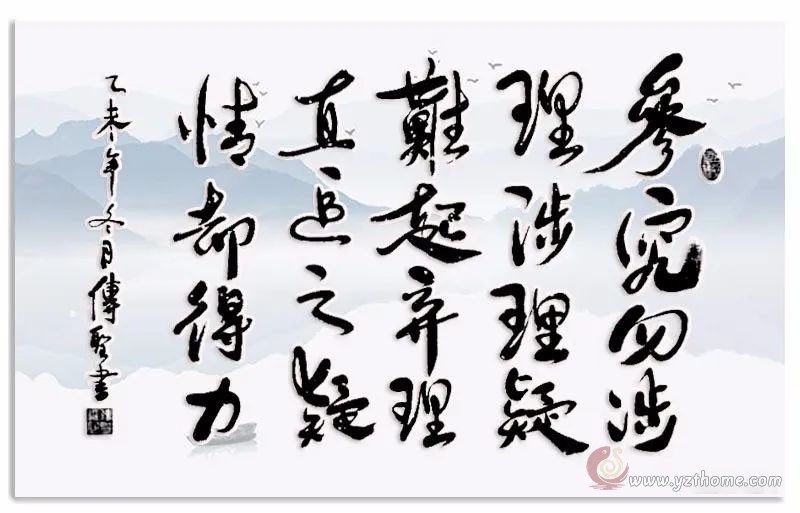 參究勿涉
理涉理疑
難起弃理
直追之疑
情却得力
乙未年冬月傳聖書
www.yzthome.com